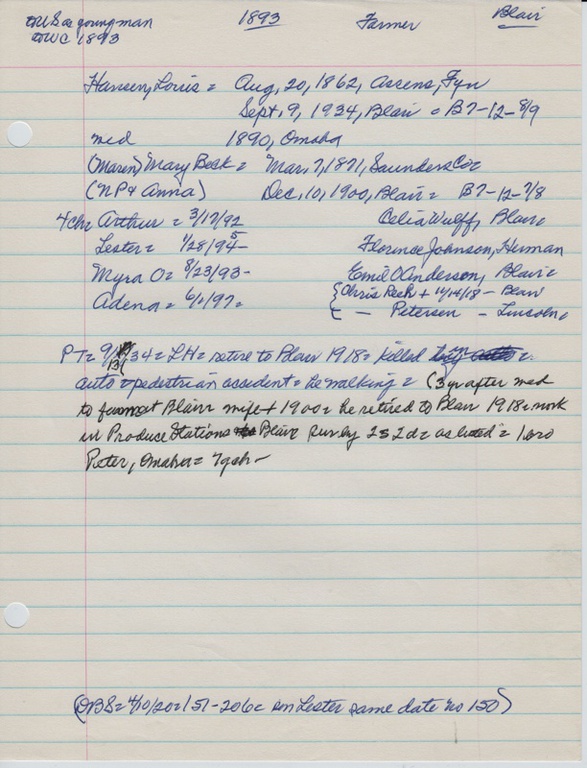 to US as young man 1893 Farmer Blair
to WC 1893
Hansen, Louis = Aug, 20, 1862, Assens, Fyn
Sept, 9, 1934, Blair = B7-12-8/9
med 1890, Omaha
(Maren) Mary Beck = Mar, 7, 1871, Saunders Co=
(NP & Anna) Dec, 10, 1900, Blair = B7-12-7/8
4ch= Arthur = 3/17/92 Celia Wulff, Blair=
Lester = 1/28/95 Florence Johnson, Herman
Myra O = 8/23/93- Emil O Anderson, Blair=
Adena = 6/1/97= { Chris Reeh + 11/14/18 - Blair
{ - Petersen - Lincoln=
PT= 9/13/34 = LH = retire to Blair 1918 = killed in
auto = pedestrian accident = he walking = (3 yr after med
to farm at Blair wife + 1900 = he retired to Blair 1918 = work
in Produce Stations Blair surv by 2s 2d = as listed = 1 bro
Peter, Omaha = 7 gch -
(DBS = 4/10/20 = 151-206 = son Lester same date no 150)